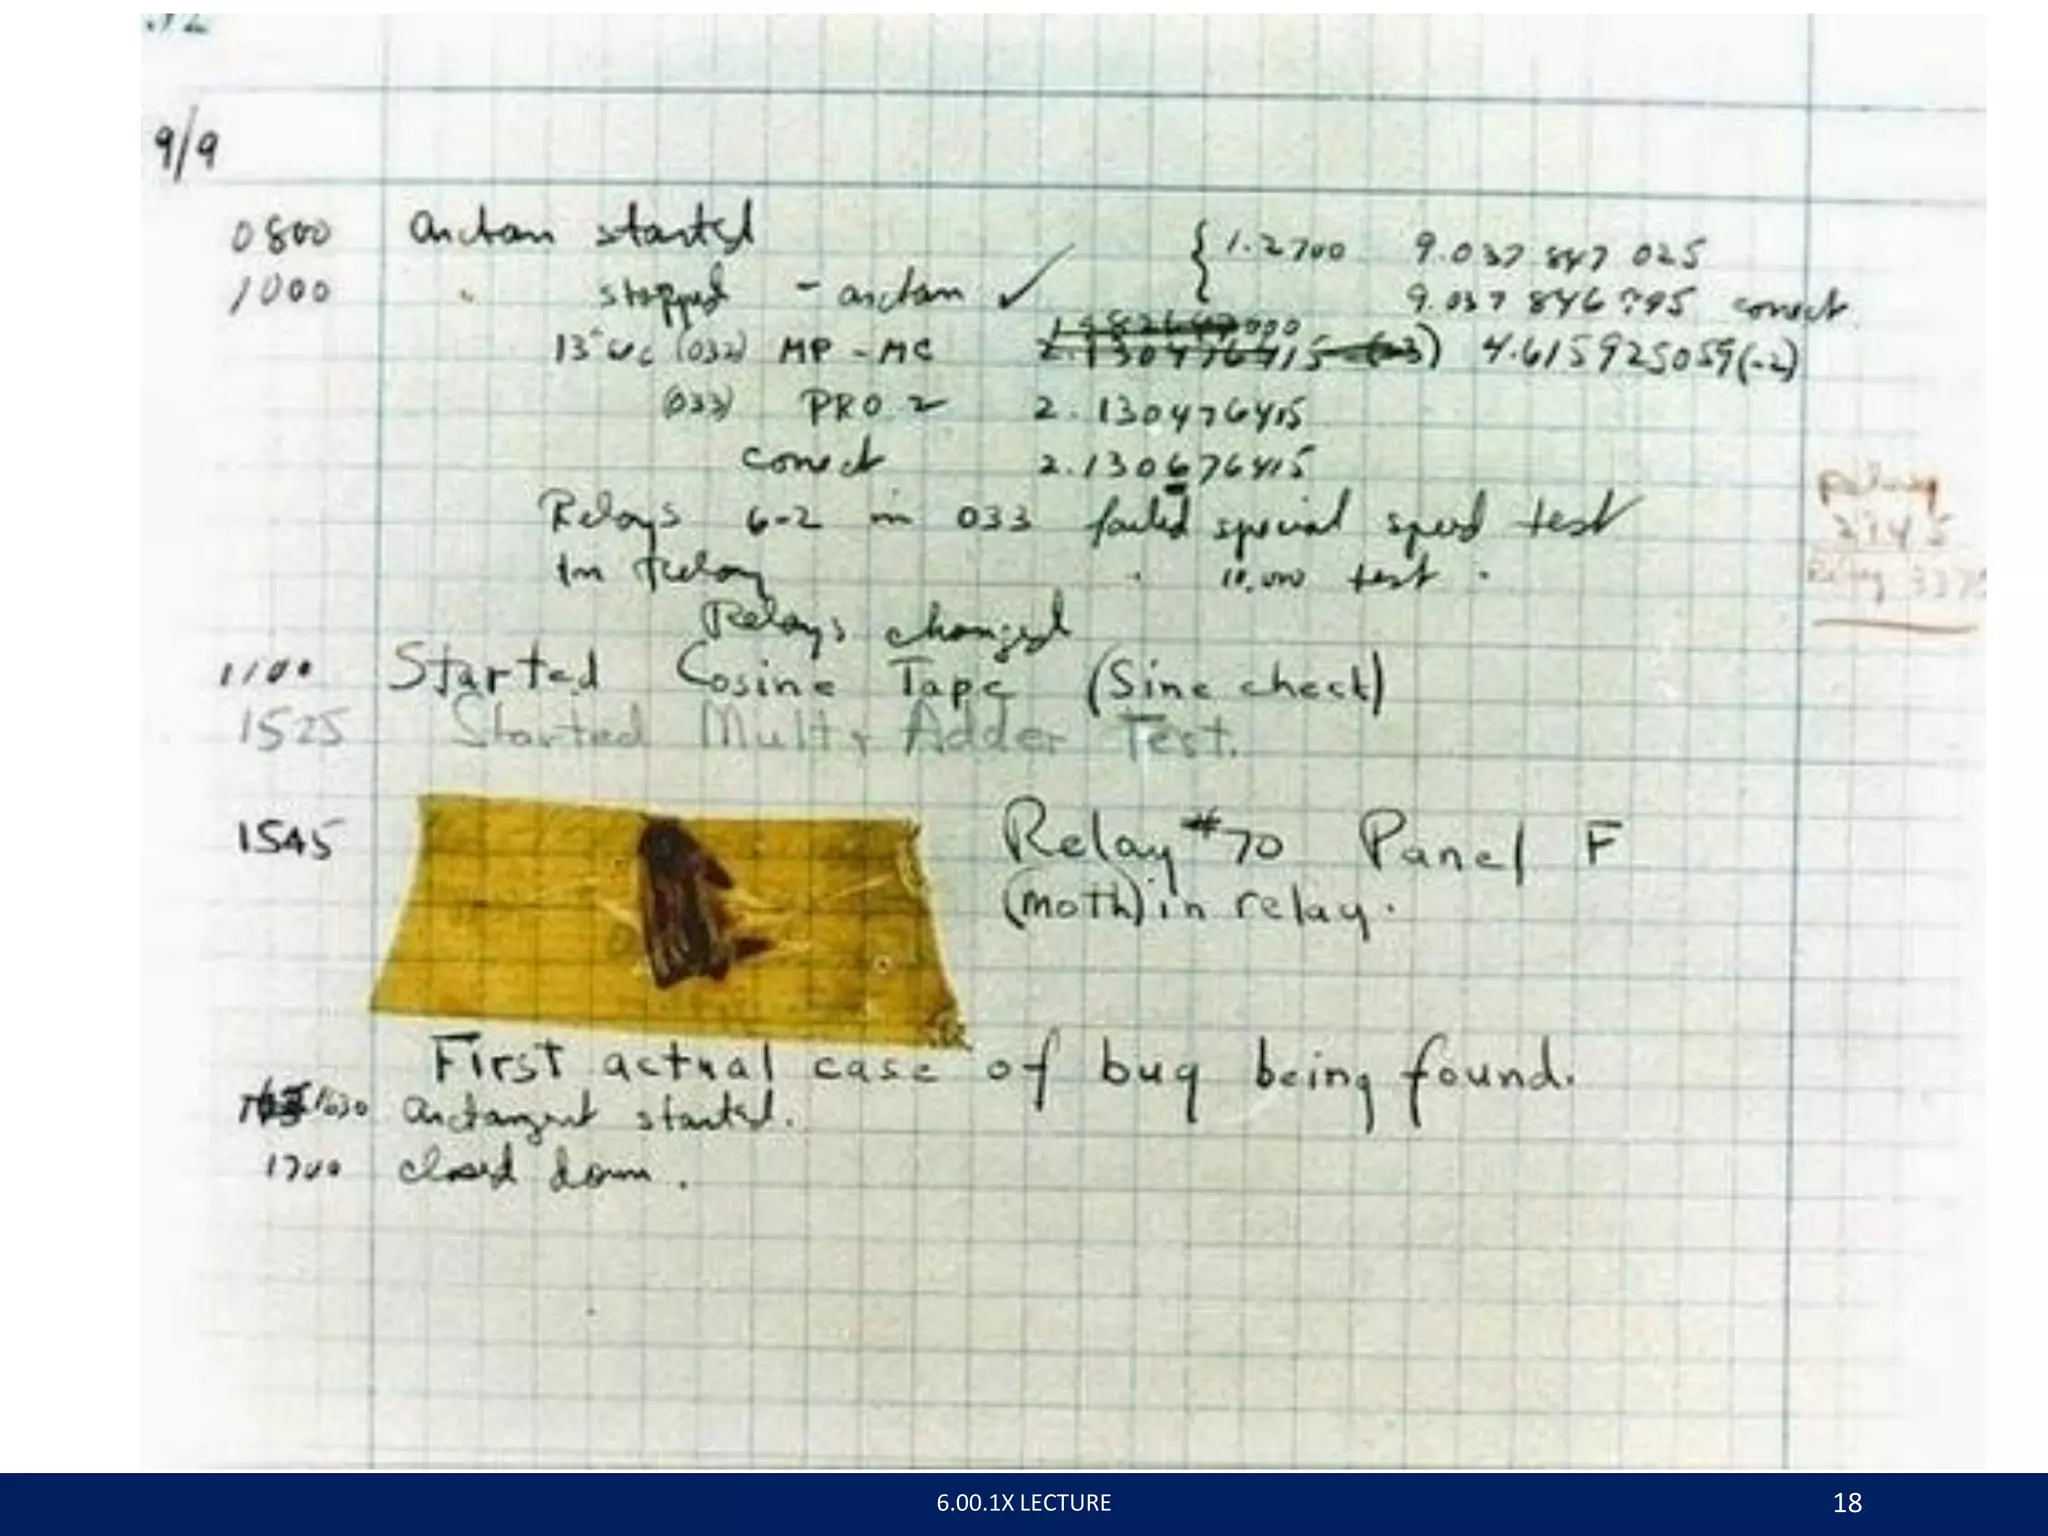 9/9
0800 antan started
1000 " stopped - antan ✓ { 1.2700 9.037 847 025
9.037 846 795 correct
13" uc (032) MP - MC 2.130476415 (-3) 4.615925059(-2)
(033) PRO 2 2.130476415
correct 2.130676415
Relays 6-2 in 033 failed special speed test
in relay " 10.000 test .
Relays changed
Relay
2145
Relay 337
1100 Started Cosine Tape (Sine check)
1525 Started Mult + Adder Test.
1545 Relay #70 Panel F
(moth) in relay.
First actual case of bug being found.
1630 antangent started.
1700 closed down.
6.00.1X LECTURE
18